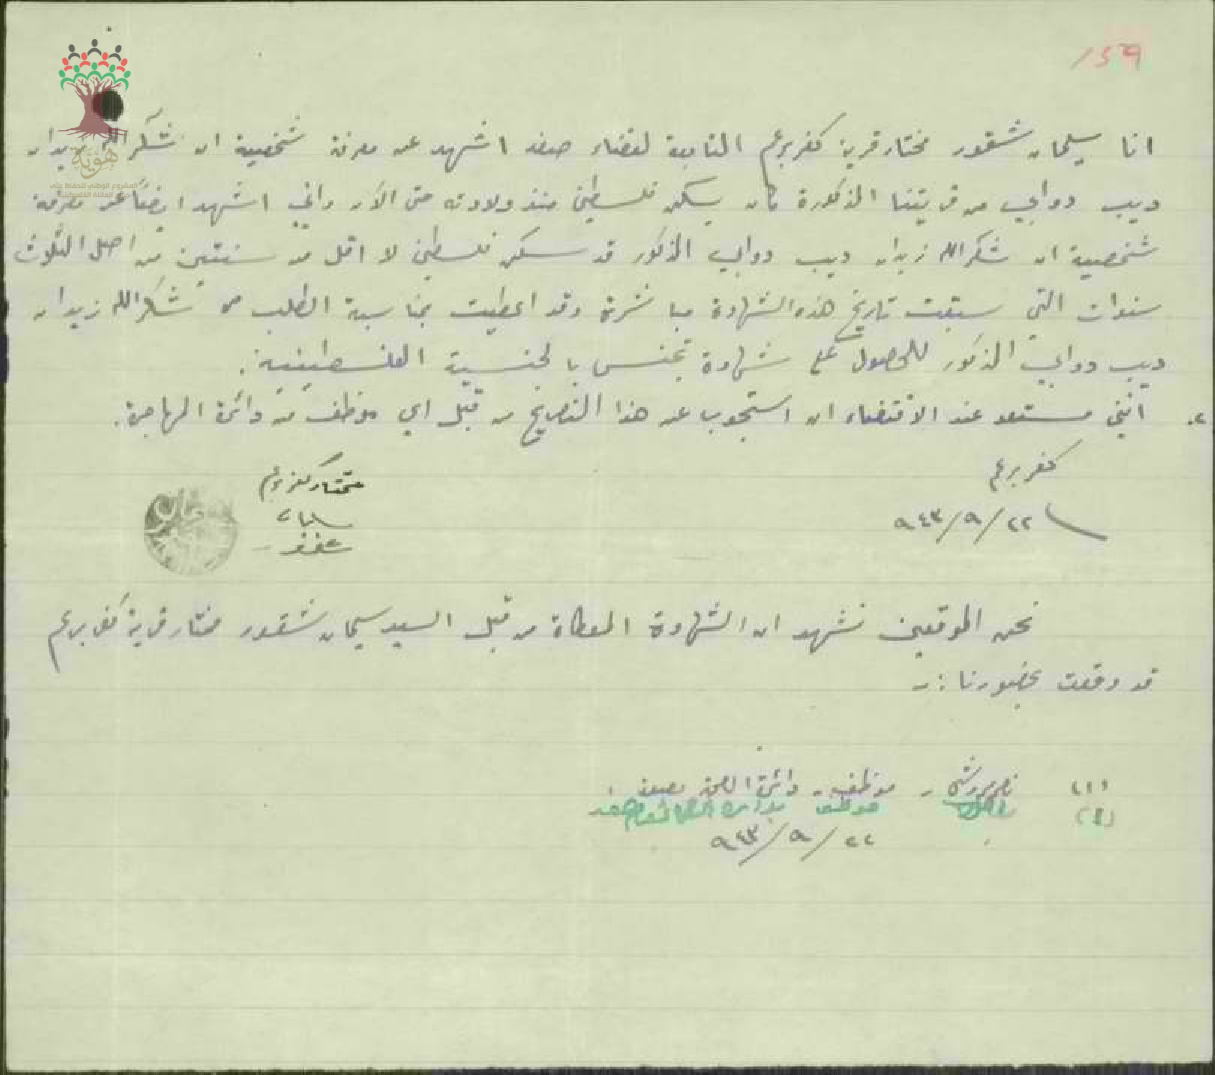 159
انا سليمان شقور مختار قرية كفربرعم التابعة لقضاء صفد اشهد عن معرفة شخصية ان شكرالله زيدان
ديب دوالي من قريتنا المذكورة كان يسكن فلسطين منذ ولادته حتى الآن واني اشهد ايضاً عن معرفة
شخصية ان شكرالله زيدان ديب دوالي المذكور قد سكن فلسطين لا اقل من سنتين من اصل الثلاث
سنوات التي سبقت تاريخ هذه الشهادة مباشرة وقد اعطيت بمناسبة الطلب من شكرالله زيدان
ديب دوالي المذكور للحصول على شهادة تجنس بالجنسية الفلسطينية.
٢. انني مستعد عند الاقتضاء ان استجوب عن هذا التصريح من قبل اي موظف من دائرة المهاجرة.
كفر برعم
٢٢/٩/٩٤٣
مختار كفربرعم
سليمان
شقور
هوية
نحن الموقعين نشهد ان الشهادة المعطاة من قبل السيد سليمان شقور مختار قرية كفربرعم
قد وقعت بحضورنا :-
(١) موظف دائرة الصحة بصفد
(٢) موظف بدائرة
٢٢/٩/٩٤٣